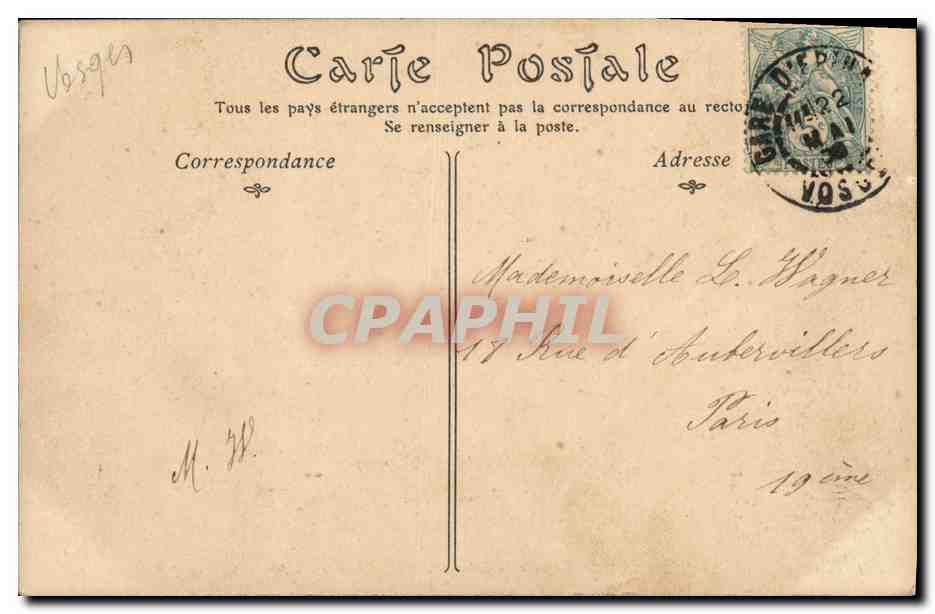 Vosges
Carte Postale
Tous les pays étrangers n'acceptent pas la correspondance au recto
Se renseigner à la poste.
Correspondance
Adresse
GARE D'EPINAL
22
MAI
VOSGES
Mademoiselle L. Wagner
17 Rue d'Aubervillers
Paris
19ème
M. W.
CPAPHIL